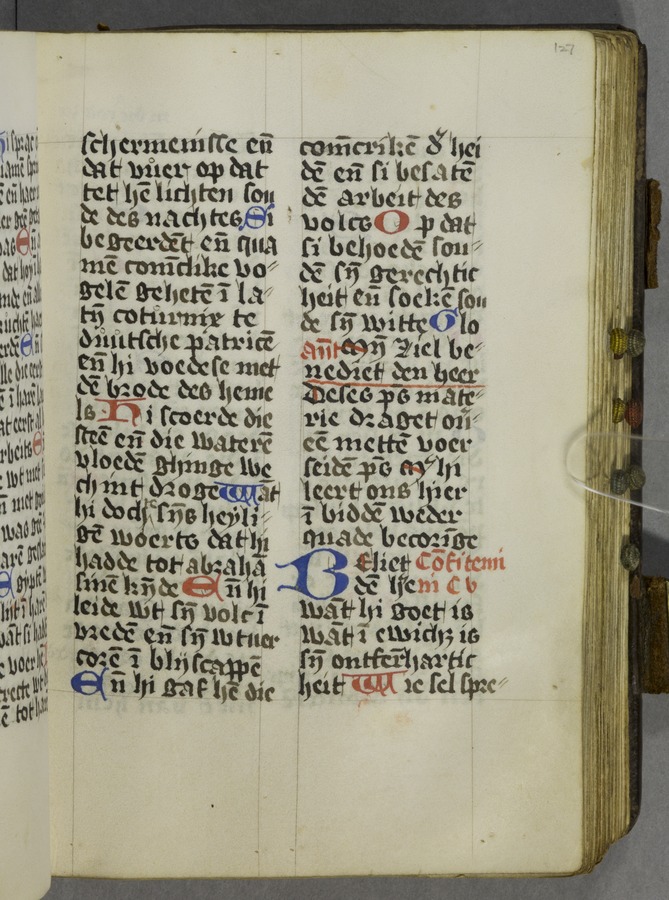 127
schermenisse en̄
dat vuer op dat
tet hē lichten sou
de des nachtes Si
begeerdēt en̄ qua
mē comēlike vo⸗
gelē gehetē ī la⸗
tȳ coturnix te
duutsche patricē
en̄ hi voedese met
dē brode des heme
ls Hi scoerde die
steē en̄ die waterē
vloedē ghinge we
ch int droge Wāt
hi docht sȳs heyli⸗
gē woerts dat hi
hadde tot abrahā
sinē knde En̄ hi
leide wt sȳ volc ī
vredē en̄ sȳ wtuer
corē ī blijscappē
En̄ hi gaf hē die
com̄crikē d' hei
dē en̄ si besatē
dē arbeit des
volcs Op dat
si behoedē sou⸗
dē sȳ gerechtic
heit en̄ soekē sou
de sȳ witte Glo
an̄t Mȳ ziel be⸗
nediet den heer
Deses ps mate⸗
rie draget ou̅⸗
eē mettē voer
seidē ps m' hi
leert ons hier
ī biddē weder
quade becorīge
Beliet Cōfitemi
dē he'ni Cv
wāt hi goet is
wāt ī ewich is
sȳ ontferhartic
heit Wie sel spre⸗